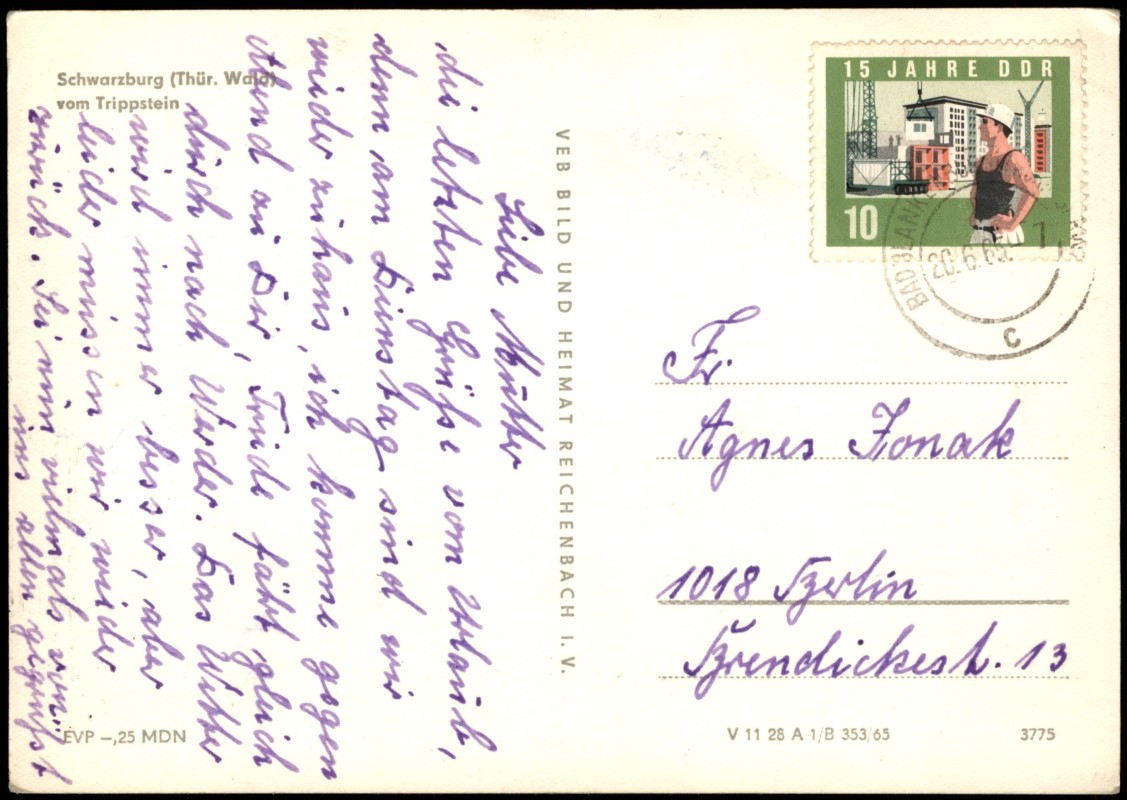 Schwarzburg (Thür. Wald)
vom Trippstein
Liebe Mutter
die letzten Grüße vom Urlaub,
denn am Dienstag sind wir
wieder zuhaus, ich komme gegen
Abend zu Dir, Trude fährt gleich
durch nach Werder. Das Wetter
wird immer besser, aber
leider müssen wir wieder
zurück. Sei nun vielmals von
uns allen gegrüßt
VEB BILD UND HEIMAT REICHENBACH I. V.
15 JAHRE DDR
10
BAD BLANKE
20.6.65
C
Fr.
Agnes Zonak
1018 Berlin
Brendickest. 13
EVP –,25 MDN
V 11 28 A 1/B 353/65
3775